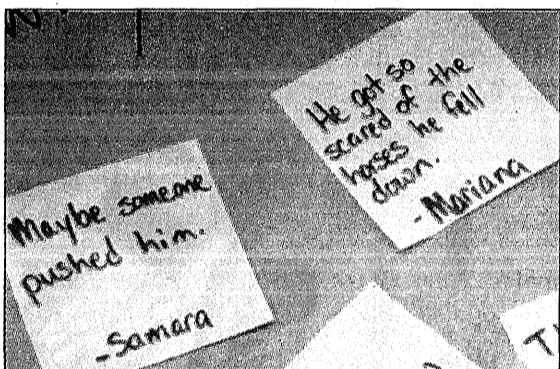 Maybe someone
pushed him.
-Samara
He got so
scared of the
hoses he fell
down.
-Mariana
T